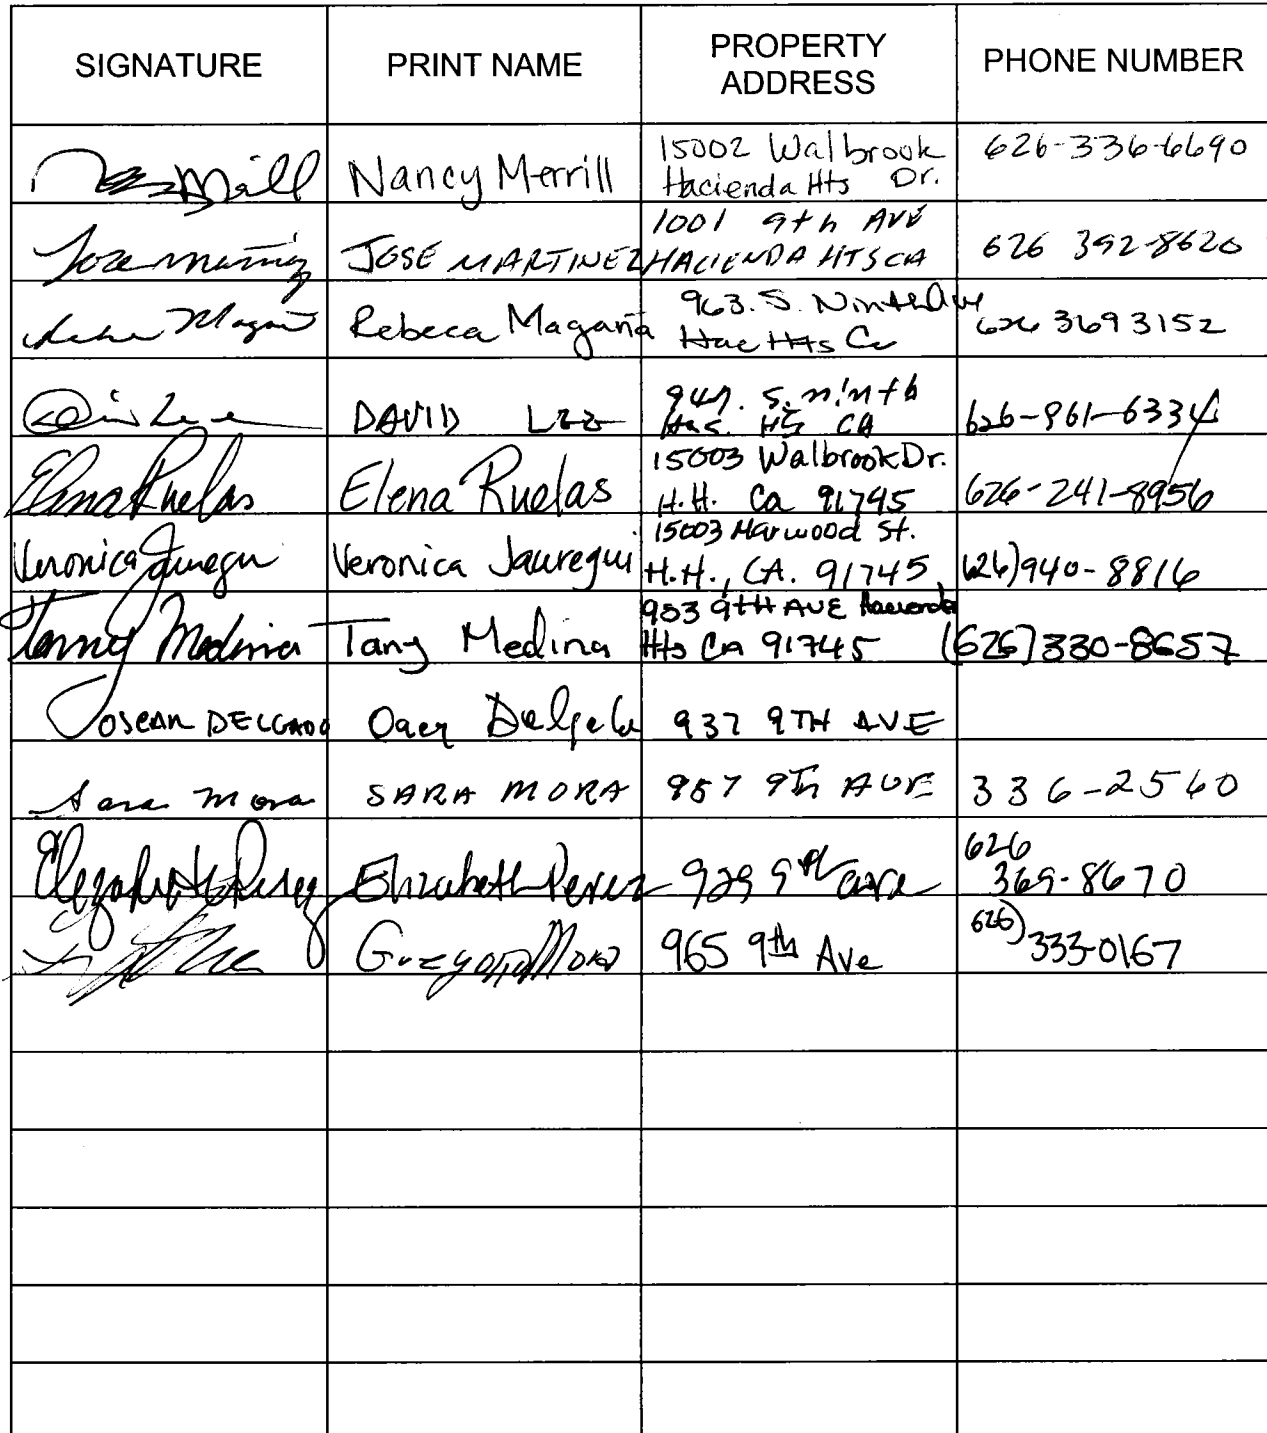 SIGNATURE
PRINT NAME
PROPERTY
ADDRESS
PHONE NUMBER
Nancy Merrill
15002 Walbrook
Hacienda Hts Dr.
626-336-6690
JOSE MARTINEZ
1001 9th AVE
HACIENDA HTS CA
626 392-8620
Rebeca Magaña
963. S. Ninth Ave
Hac Hts Ca
626 369 3152
DAVID LEE
947. S. ninth
Hac. Hts CA
626-961-6334
Elena Ruelas
Elena Ruelas
15003 Walbrook Dr.
H.H. Ca 91745
626-241-8956
Veronica Jauregui
Veronica Jauregui
15003 Marwood St.
H.H., CA. 91745
(626)940-8816
Medina
Tany Medina
953 9TH AVE Hacienda
Hts CA 91745
(626)330-8657
OSCAR DELGADO
937 9TH AVE
Sara Mora
SARA MORA
957 9Th AVE
336-2560
Elizabeth Perez
Elizabeth Perez
929 9th ave
626
369-8670
965 9th Ave
626)
333-0167